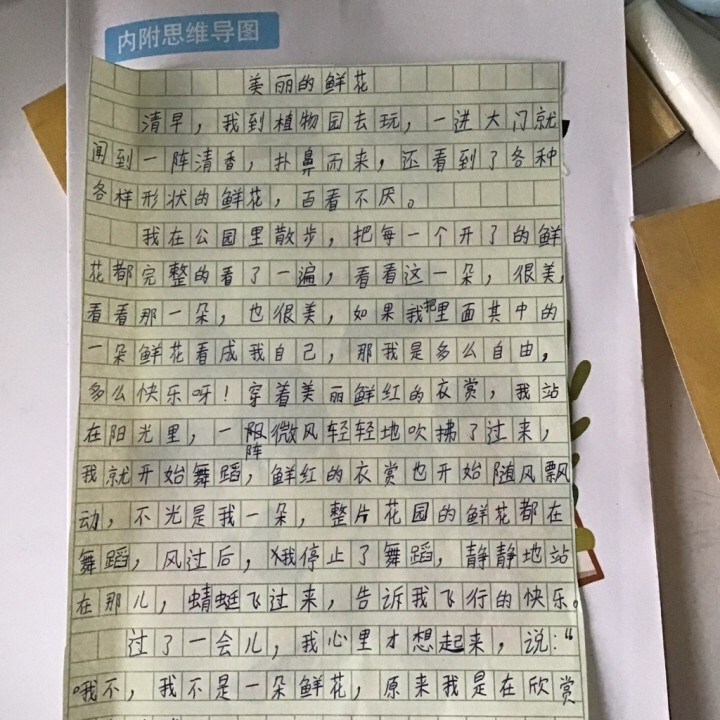 内附思维导图
美丽的鲜花
清早，我到植物园去玩，一进大门就
闻到一阵清香，扑鼻而来，还看到了各种
各样形状的鲜花，百看不厌。
我在公园里散步，把每一个开了的鲜
花都完整的看了一遍，看看这一朵，很美，
看看那一朵，也很美，如果我把里面其中的
一朵鲜花看成我自己，那我是多么自由，
多么快乐呀！穿着美丽鲜红的衣赏，我站
在阳光里，一阵微风轻轻地吹拂了过来，
我就开始舞蹈，鲜红的衣赏也开始随风飘
动，不光是我一朵，整片花园的鲜花都在
舞蹈，风过后，我停止了舞蹈，静静地站
在那儿，蜻蜓飞过来，告诉我飞行的快乐。
过了一会儿，我心里才想起来，说：“
哦不，我不是一朵鲜花，原来我是在欣赏